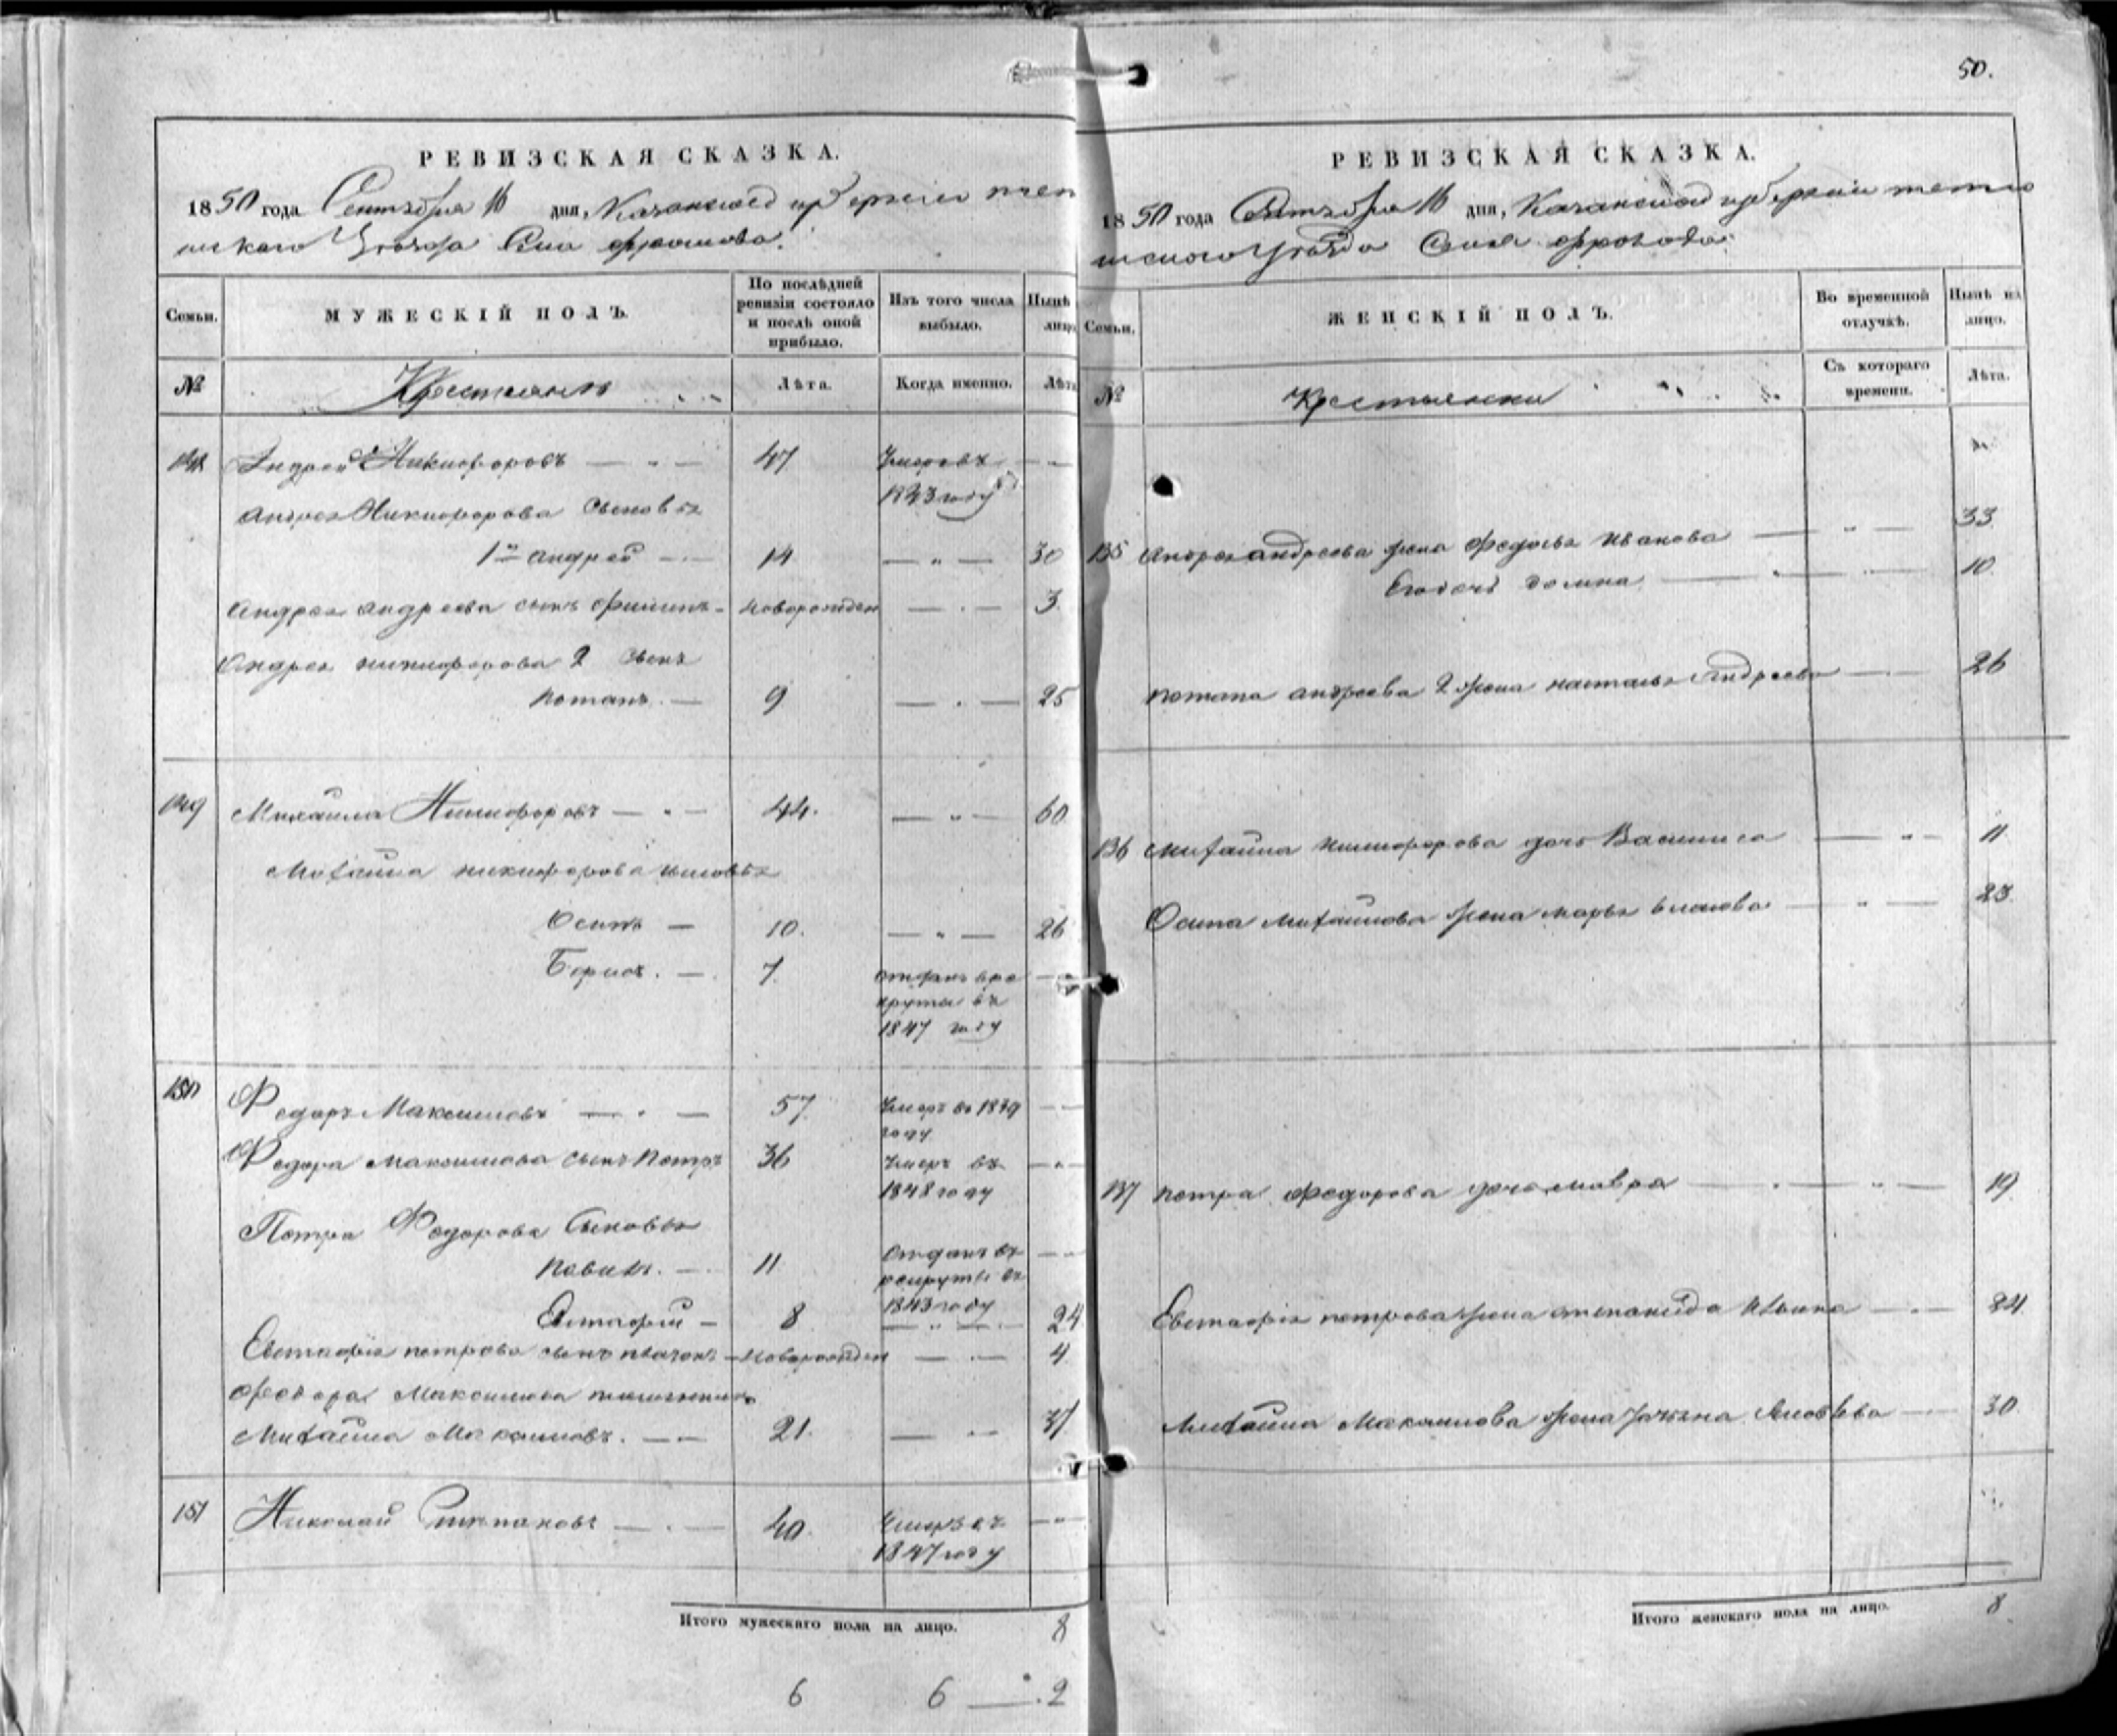 50.
РЕВИЗСКАЯ СКАЗКА.
1850 года Сентября 16 дня, Казанской губернии тетю
шскаго Уезда Села
Семьи.
МУЖЕСКІЙ ПОЛЪ.
По послѣдней ревизіи состояло и послѣ оной прибыло.
Изъ того числа выбыло.
Нынѣ лицо
№
Крестьянъ
Лѣта.
Когда именно.
Лѣта
148 Андрей Никифоровъ — " — 47 Умеръ въ — " —
1843 году
Андрея Никифорова Сыновья
1й андрей — " — 14 — " — 30
Андрея андреева сынъ Филипъ — новорожден — " — 3
Андрея никифорова 2 Сынъ
потапъ. — 9 — " — 25
149 Михаила Никифоровъ — " — 44. — " — 60
Михаила никифорова сыновья
Осипъ — 10. — " — 26
Борисъ. — 7. отданъ в ре
круты въ
1847 году
150 Федоръ Максимовъ — " — 57 Умеръ в 1849
году
Федора максимова сынъ Петръ 36 Умеръ въ — " —
1848 году
Петра Федорова Сыновья
павилъ. — 11 Отданъ въ
рекруты въ
1843 году
Евстафій — 8 — " — 24
Евстафія петрова сынъ платонъ — новорожден — " — 4
Федора Максимова племянникъ
Михайла Максимовъ. — " — 21. — " — 37
151 Николай Степановъ — " — 40. Умеръ въ — " —
1847 году
Итого мужескаго пола на лицо. 8
6 6 — . 2
РЕВИЗСКАЯ СКАЗКА.
1850 года Сентября 16 дня, Казанской губернии тетю
шскаго Уезда Села
Семьи.
ЖЕНСКІЙ ПОЛЪ.
Во временной отлучкѣ.
Нынѣ на лицо.
№
Крестьянки
Съ котораго времени.
Лѣта.
135 Андрея андреева жена Федосья Иванова — " — 33
Его дочь домна — " — 10.
потапа андреева 2 жена наталья Андреева — 26
136 Михайла никифорова дочь Василиса — " — 11
Осипа Михайлова жена марья — " — 23.
137 петра Федорова дочь мавра — " — 19
Евстафія петрова жена степанида — " — 24
Михайла Максимова жена Татьяна Яковлева — 30.
Итого женскаго пола на лицо. 8.